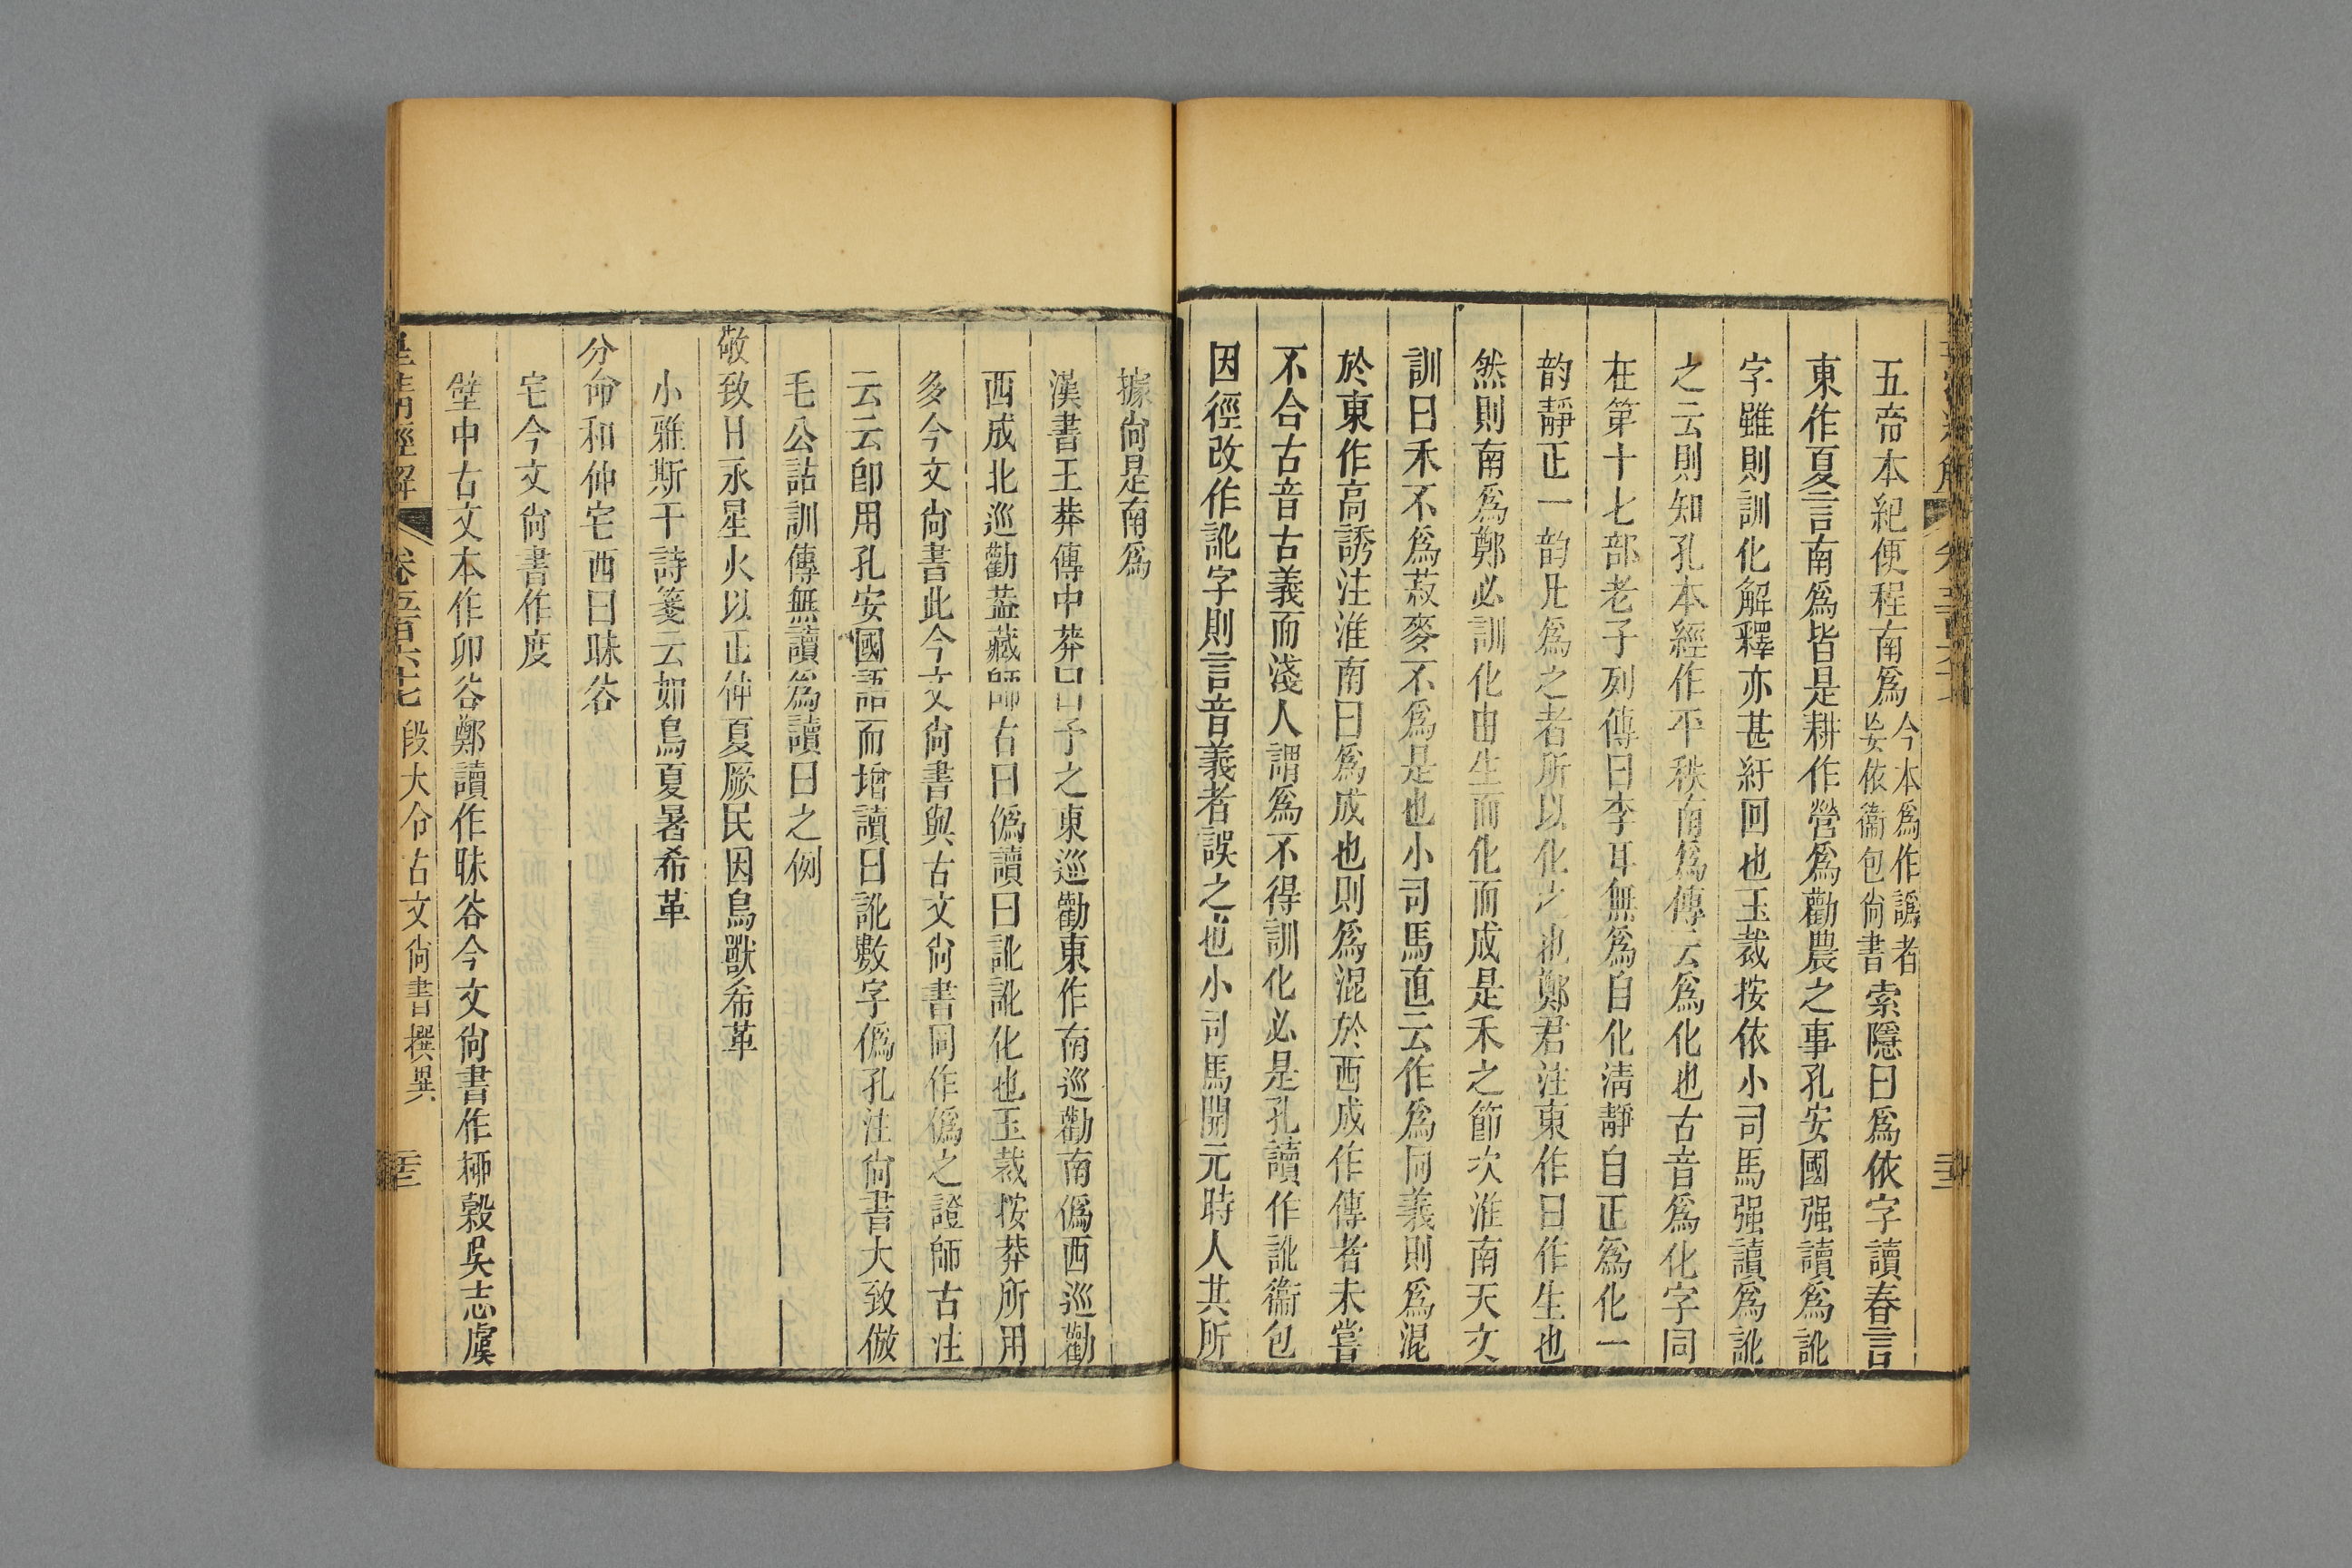 五帝本紀便程南爲今本爲作譌者妄依衞包尙書索隱曰爲依字讀春言
東作夏言南爲皆是耕作營爲勸農之事孔安國强讀爲訛
字雖則訓化解釋亦甚紆回也玉裁按依小司馬强讀爲訛
之云則知孔本經作平秩南爲傳云爲化也古音爲化字同
在第十七部老子列傳曰李耳無爲自化淸靜自正爲化一
韵靜正一韵凡爲之者所以化之也鄭君注東作曰作生也
然則南爲鄭必訓化由生而化而成是禾之節次淮南天文
訓曰禾不爲菽麥不爲是也小司馬直云作爲同義則爲混
於東作高誘注淮南曰爲成也則爲混於西成作傳者未嘗
不合古音古義而淺人謂爲不得訓化必是孔讀作訛衞包
因徑改作訛字則言音義者誤之也小司馬開元時人其所
據尙是南爲
漢書王莽傳中莽曰予之東巡勸東作南巡勸南僞西巡勸
西成北巡勸葢藏師古曰僞讀曰訛訛化也玉裁按莽所用
多今文尙書此今文尙書與古文尙書同作僞之證師古注
云云卽用孔安國語而增讀曰訛數字僞孔注尙書大致倣
毛公詁訓傳無讀爲讀曰之例
敬致日永星火以正仲夏厥民因鳥獸希革
小雅斯干詩箋云如鳥夏暑希革
分命和仲宅西曰昧谷
宅今文尙書作度
壁中古文本作卯谷鄭讀作昧谷今文尙書作桺穀吳志虞
皇淸經解 卷五百六十七 段大令古文尙書撰異 三